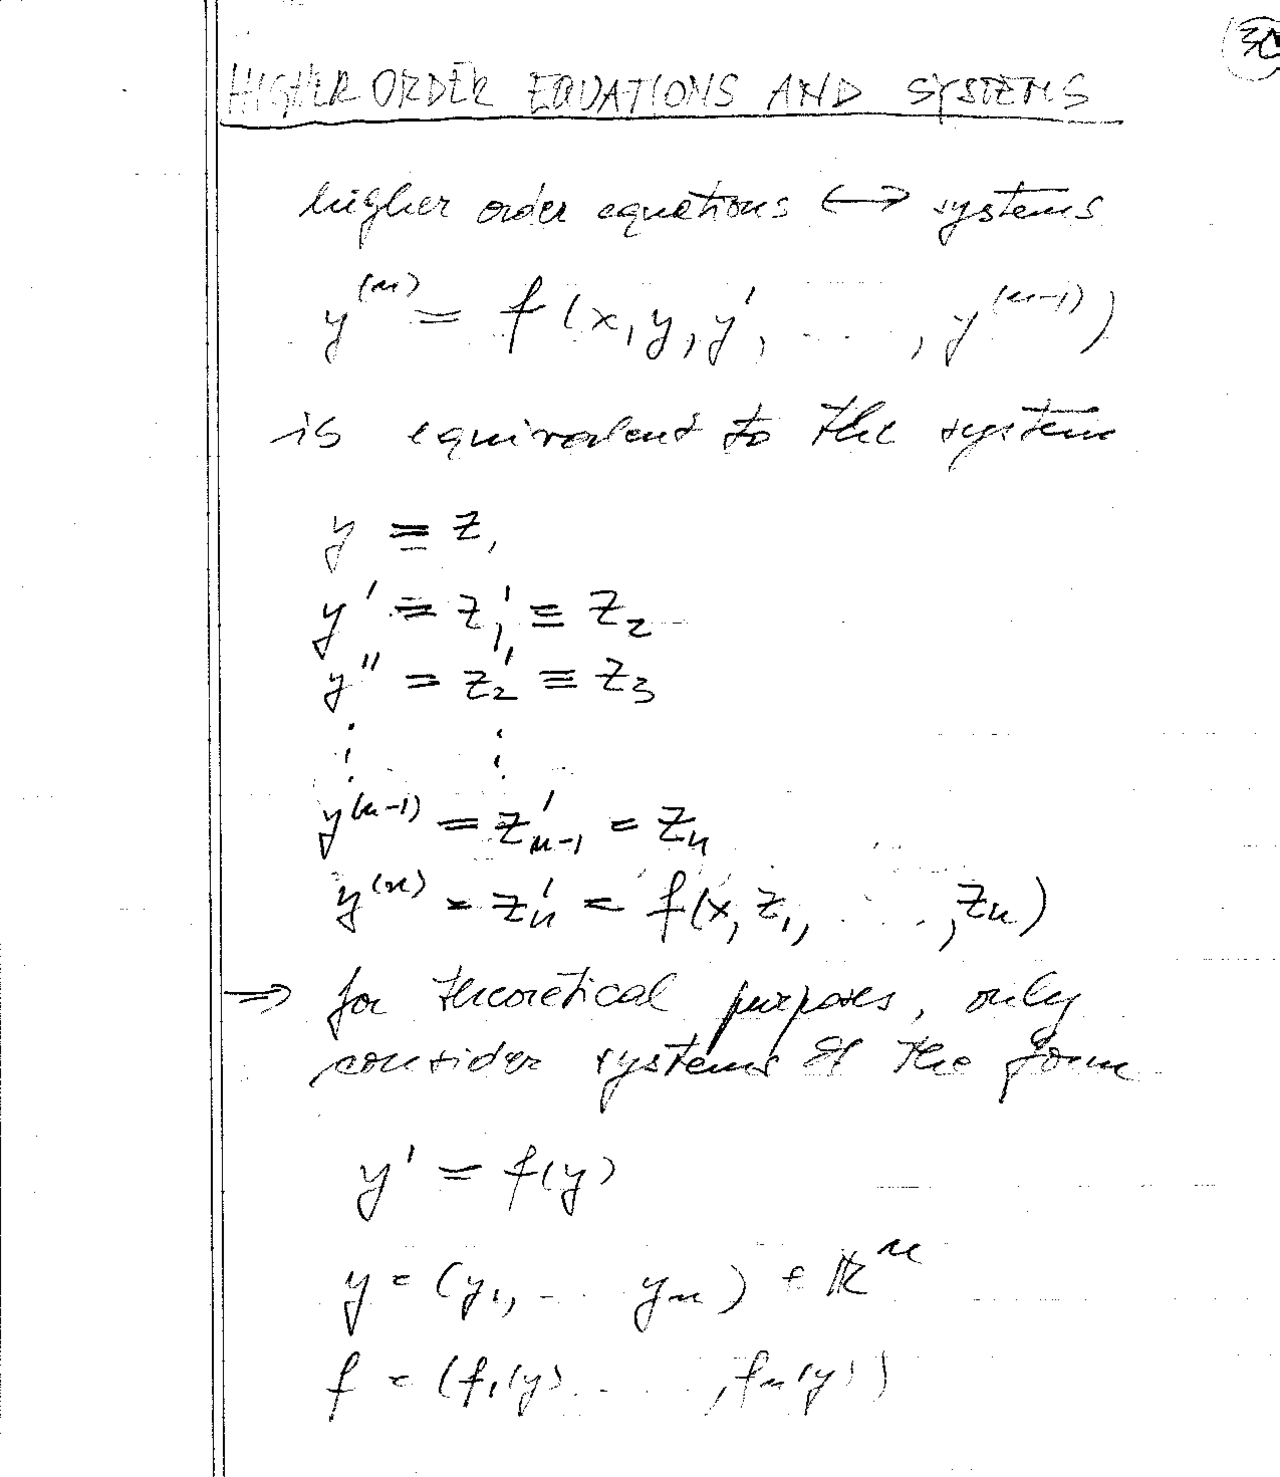 30
HIGHER ORDER EQUATIONS AND SYSTEMS
higher order equations ↔ systems
y^(n) = f(x, y, y', ...., y^(n-1))
is equivalent to the system
y ≡ z₁
y' ≡ z₁' ≡ z₂
y'' = z₂' ≡ z₃
⋮ ⋮
y^(n-1) = z'ₙ₋₁ = zₙ
y^(n) = zₙ' = f(x, z₁, ...., zₙ)
⇒ for theoretical purposes, only
consider systems of the form
y' = f(y)
y = (y₁, ... yₙ) ∈ ℝⁿ
f = (f₁(y) ...., fₙ(y))